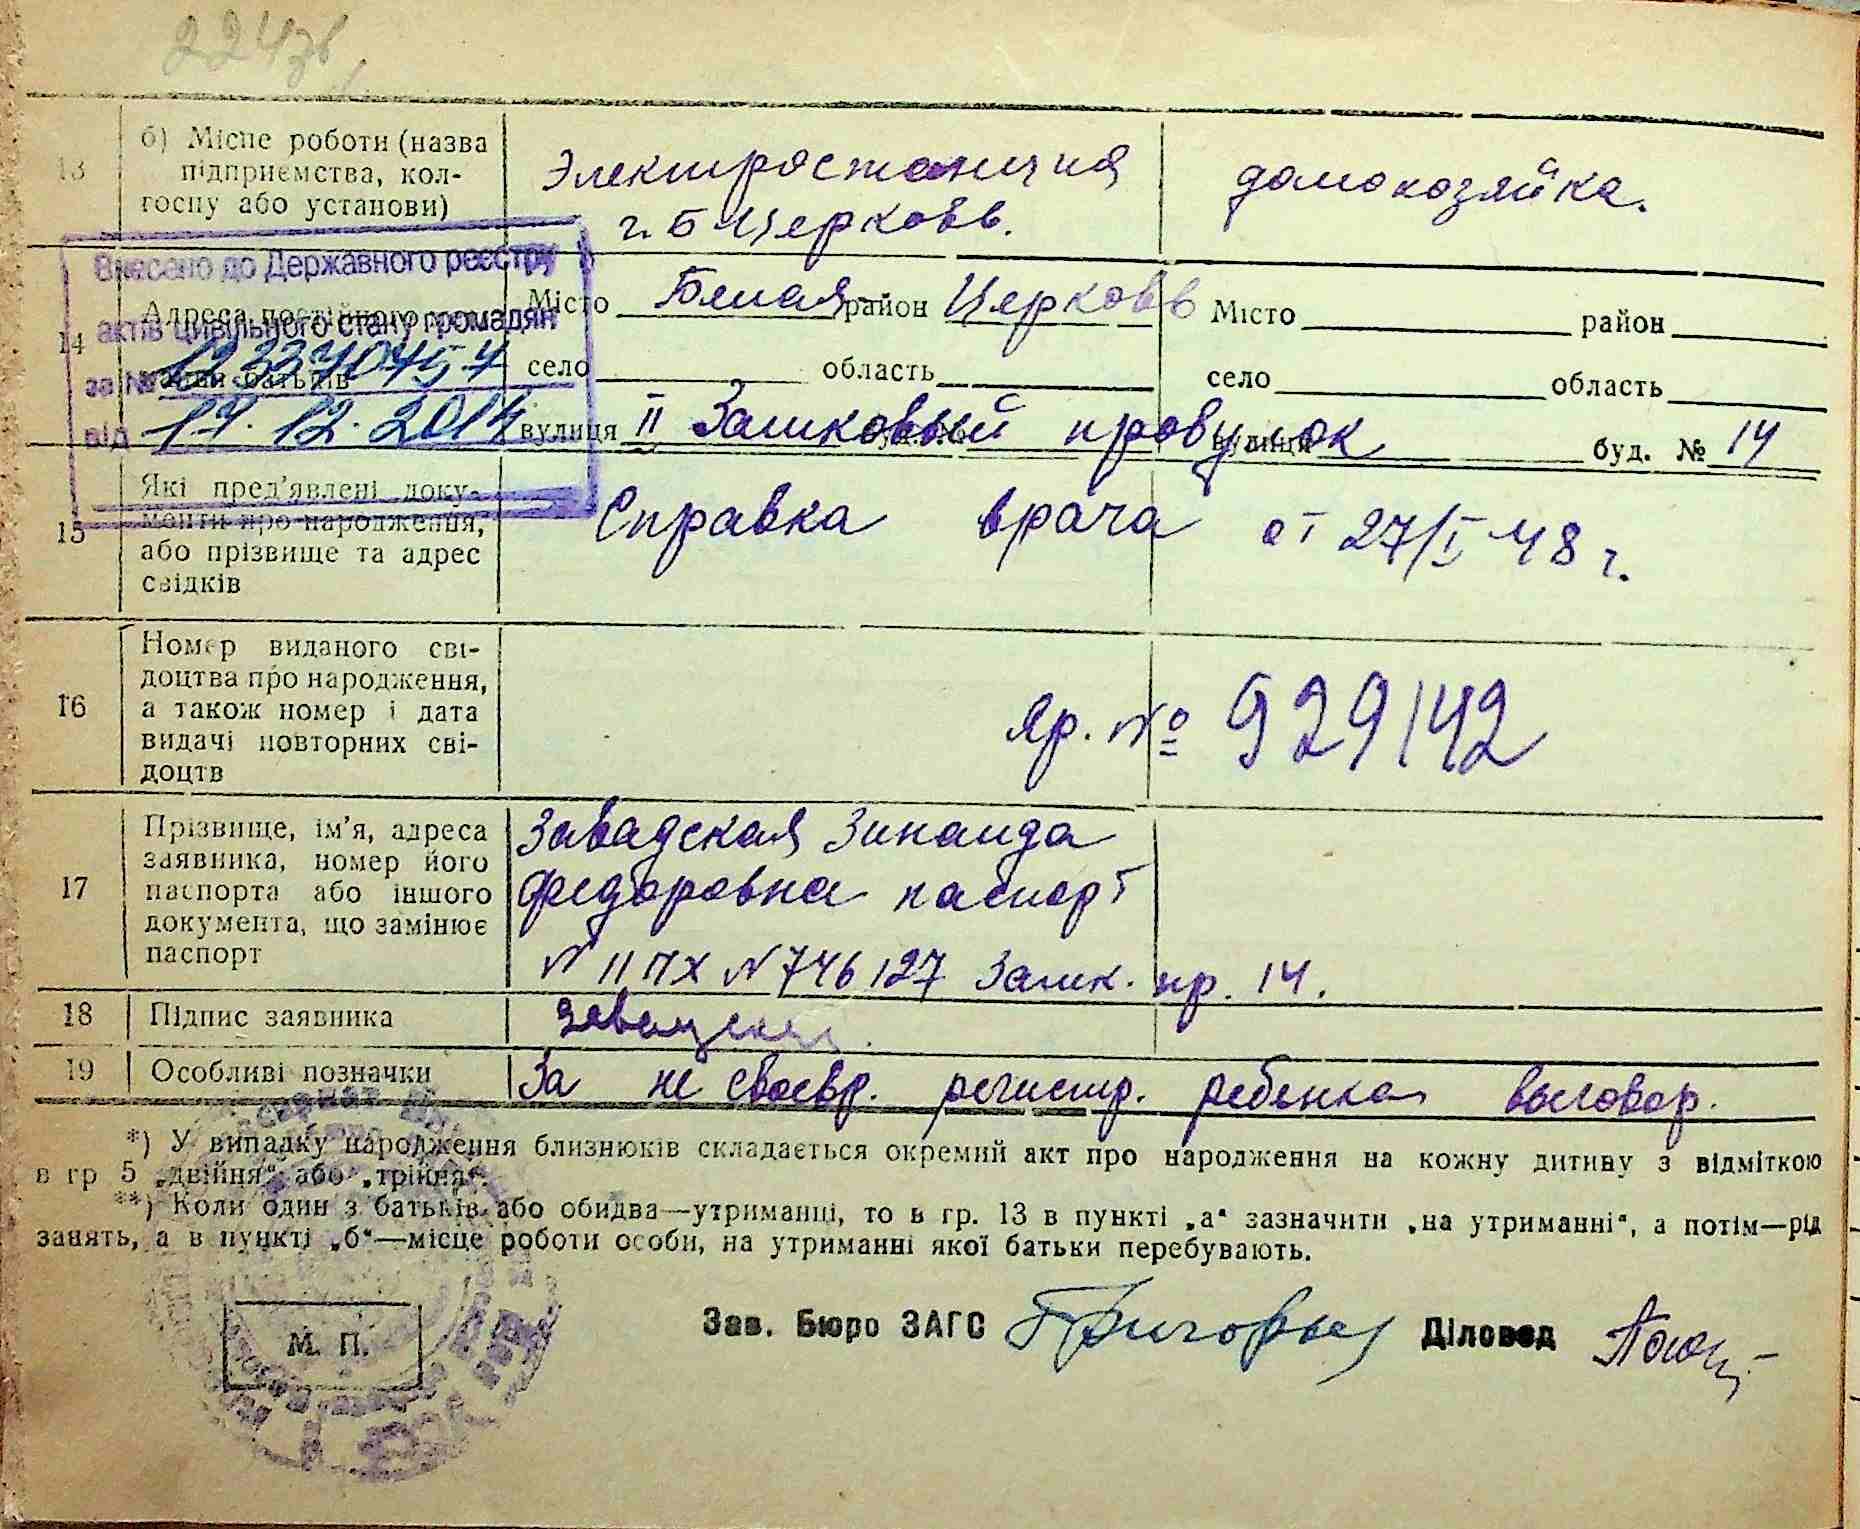 224зв
13 б) Місце роботи (назва підприємства, колгоспу або установи)
Электростанция
г. Б Церковь.
домохозяйка.
Внесено до Державного реєстру
актів цивільного стану громадян
за №
від 17.12.2014
14 Адреса постійного
батьків
Місто Белая район Церковь Місто район
село область село область
вулиця II Замковый провулок вулиця буд. № 14
15 Які пред'явлені доку-
менти про народження,
або прізвище та адрес
свідків
Справка врача от 27/I 48 г.
16 Номер виданого сві-
доцтва про народження,
а також номер і дата
видачі повторних сві-
доцтв
яр. № 929142
17 Прізвище, ім'я, адреса
заявника, номер його
паспорта або іншого
документа, що замінює
паспорт
Завадская Зинаида
Федоровна паспорт
N II ПХ N 746127 Замк. пр. 14.
18 Підпис заявника
19 Особливі позначки За не своевр. регистр. ребенка выговор.
*) У випадку народження близнюків складається окремий акт про народження на кожну дитину з відміткою
в гр 5 „двійня“ або „трійня“.
**) Коли один з батьків або обидва—утриманці, то в гр. 13 в пункті „а“ зазначити „на утриманні“, а потім—рід
занять, а в пункті „б“—місце роботи особи, на утриманні якої батьки перебувають.
Зав. Бюро ЗАГС Діловод
М. П.